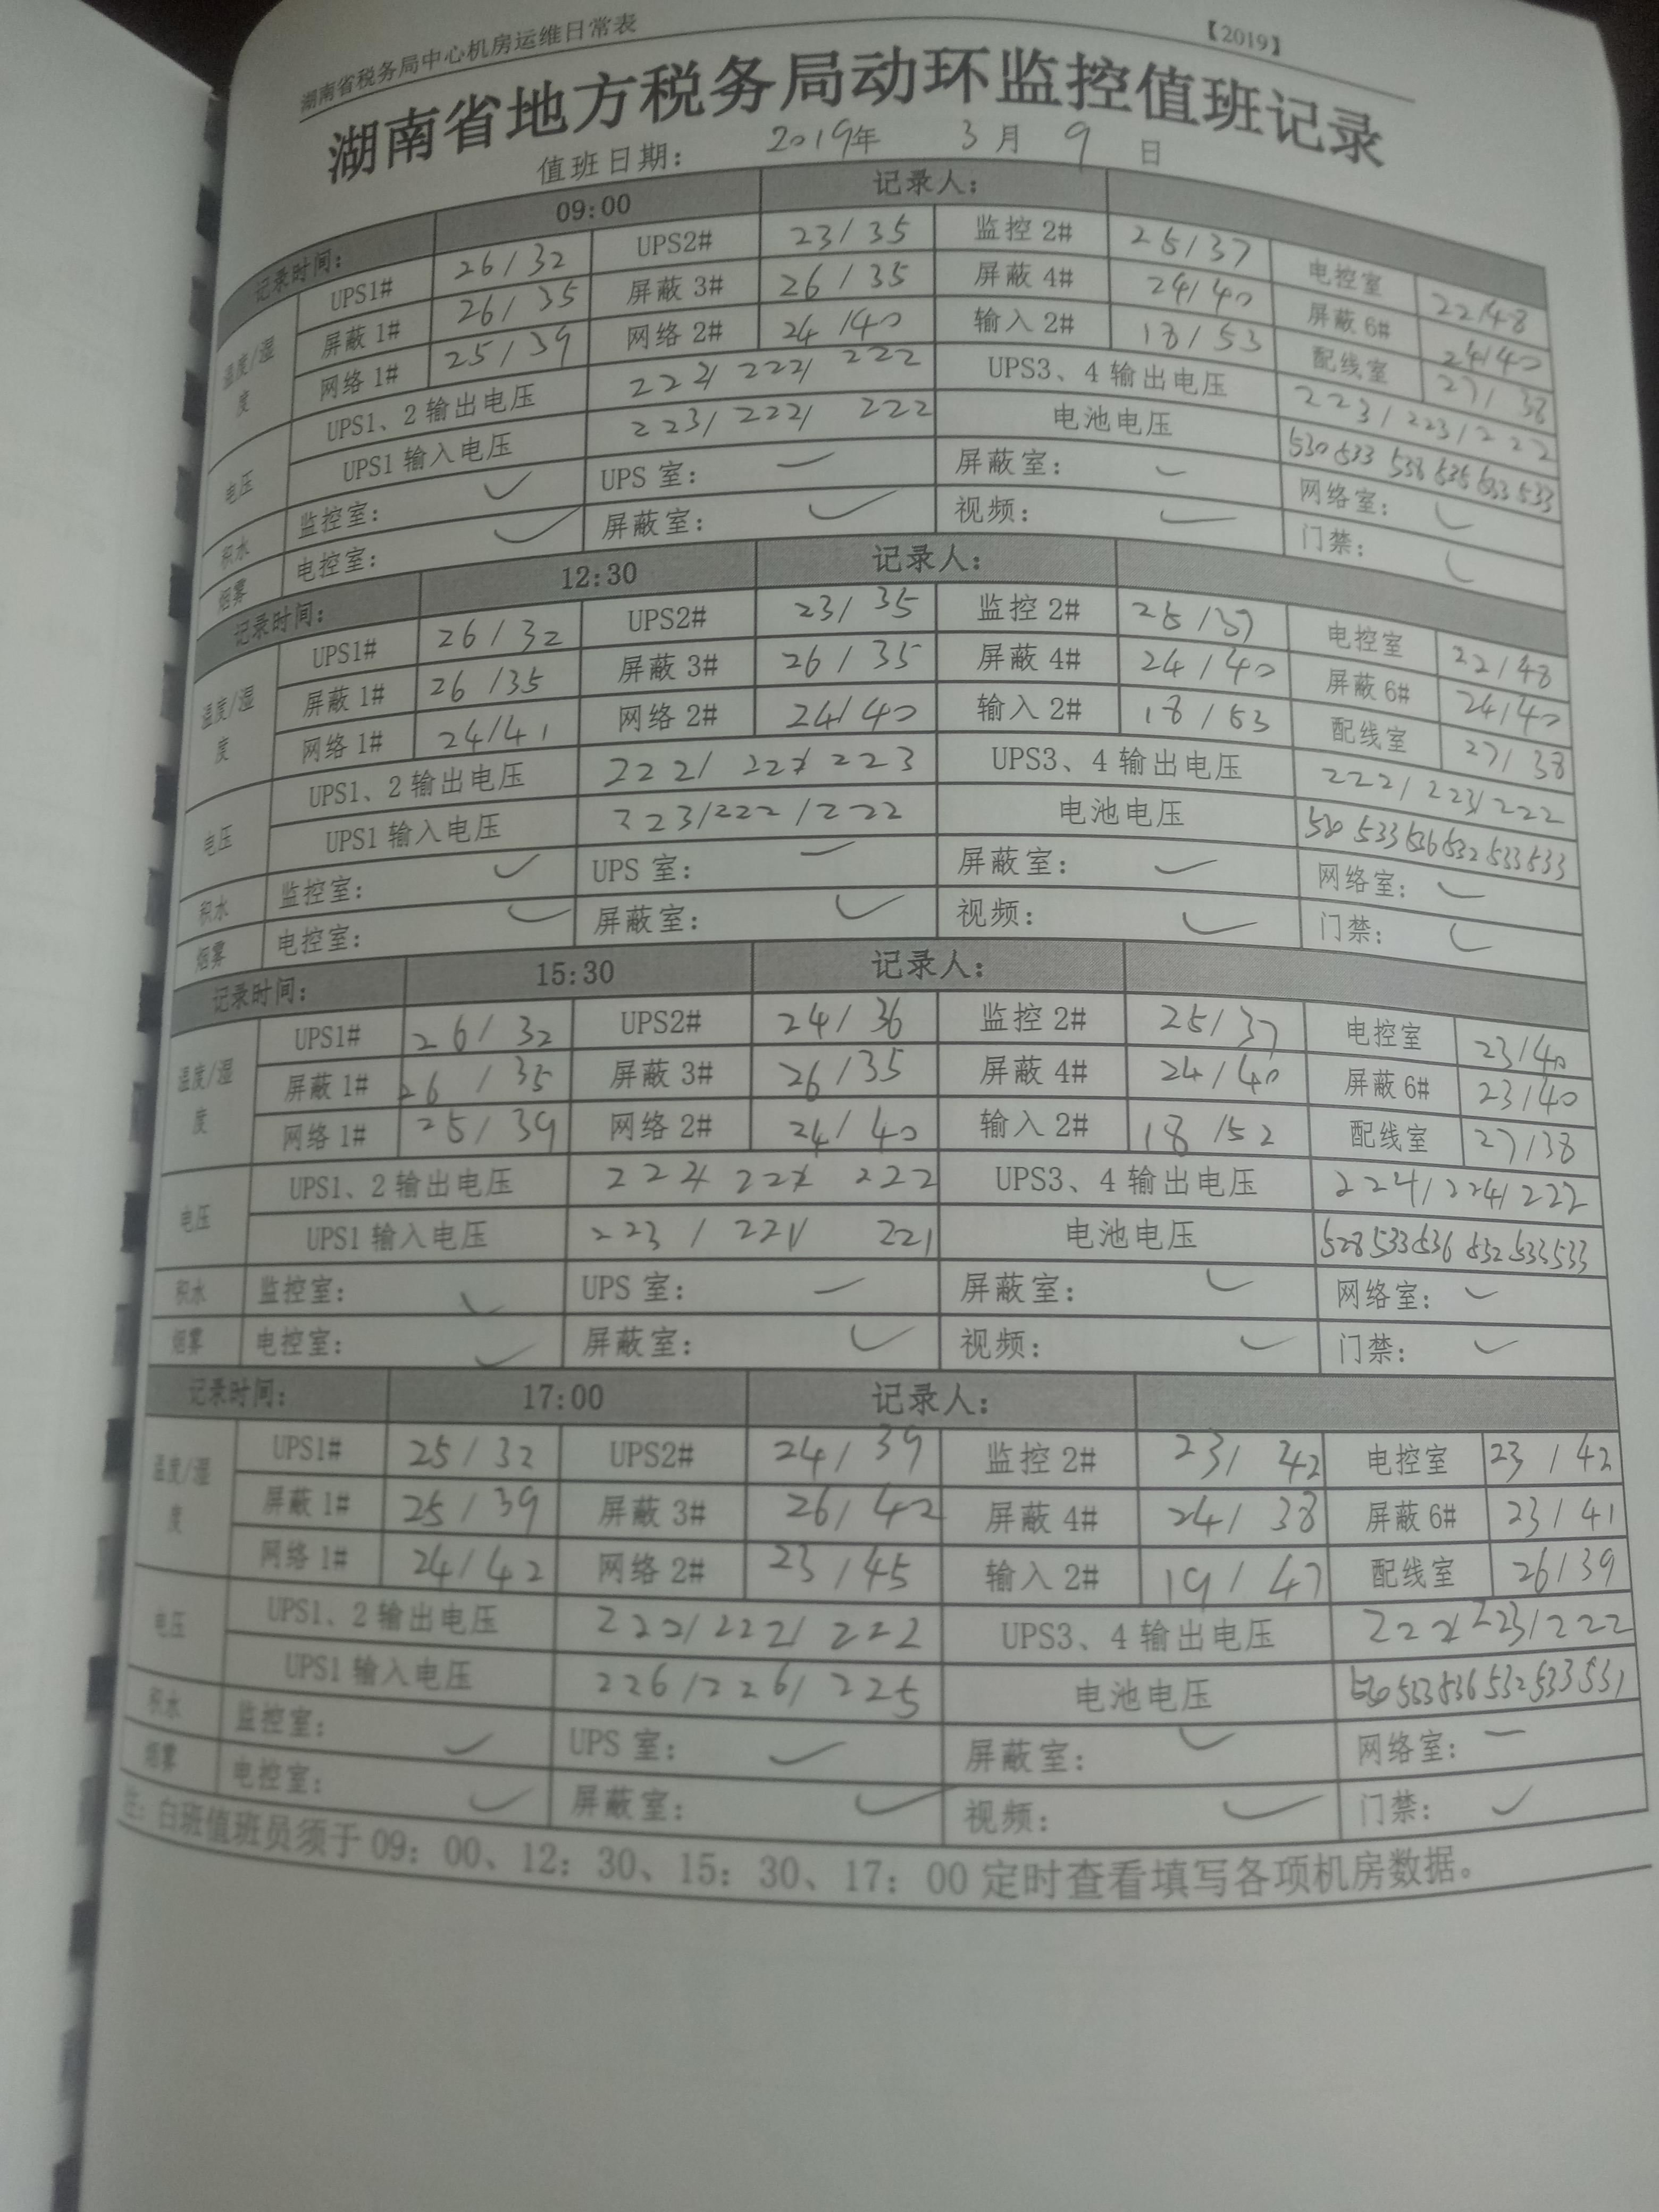 湖南省税务局中心机房运维日常表 【2019】
湖南省地方税务局动环监控值班记录
值班日期： 2019年 3 月 9 日
记录时间： 09:00 记录人：
温度/湿度 UPS1# 26/32 UPS2# 23/35 监控 2# 25/37 电控室 22/48
屏蔽 1# 26/35 屏蔽 3# 26/35 屏蔽 4# 24/40 屏蔽 6# 24/40
网络 1# 25/39 网络 2# 24/40 输入 2# 18/53 配线室 27/38
电压 UPS1、2 输出电压 222/222/222 UPS3、4 输出电压 223/223/222
UPS1 输入电压 223/222/222 电池电压 530 533 536 535 533 533
积水 监控室： ✓ UPS 室： ✓ 屏蔽室： ✓ 网络室： ✓
烟雾 电控室： ✓ 屏蔽室： ✓ 视频： ✓ 门禁： ✓
记录时间： 12:30 记录人：
温度/湿度 UPS1# 26/32 UPS2# 23/35 监控 2# 25/37 电控室 22/48
屏蔽 1# 26/35 屏蔽 3# 26/35 屏蔽 4# 24/40 屏蔽 6# 24/40
网络 1# 24/41 网络 2# 24/40 输入 2# 18/53 配线室 27/38
电压 UPS1、2 输出电压 222/222/223 UPS3、4 输出电压 222/223/222
UPS1 输入电压 223/222/222 电池电压 530 533 536 532 533 533
积水 监控室： ✓ UPS 室： ✓ 屏蔽室： ✓ 网络室： ✓
烟雾 电控室： ✓ 屏蔽室： ✓ 视频： ✓ 门禁： ✓
记录时间： 15:30 记录人：
温度/湿度 UPS1# 26/32 UPS2# 24/36 监控 2# 25/37 电控室 23/40
屏蔽 1# 26/35 屏蔽 3# 26/35 屏蔽 4# 24/40 屏蔽 6# 23/40
网络 1# 25/39 网络 2# 24/40 输入 2# 18/52 配线室 27/38
电压 UPS1、2 输出电压 222/222/222 UPS3、4 输出电压 224/224/222
UPS1 输入电压 223/221/221 电池电压 528 533 536 532 533 533
积水 监控室： ✓ UPS 室： ✓ 屏蔽室： ✓ 网络室： ✓
烟雾 电控室： ✓ 屏蔽室： ✓ 视频： ✓ 门禁： ✓
记录时间： 17:00 记录人：
温度/湿度 UPS1# 25/32 UPS2# 24/39 监控 2# 23/42 电控室 23/42
屏蔽 1# 25/39 屏蔽 3# 26/42 屏蔽 4# 24/38 屏蔽 6# 23/41
网络 1# 24/42 网络 2# 23/45 输入 2# 19/47 配线室 26/39
电压 UPS1、2 输出电压 222/222/222 UPS3、4 输出电压 222/223/222
UPS1 输入电压 226/226/225 电池电压 530 533 536 532 533 531
积水 监控室： ✓ UPS 室： ✓ 屏蔽室： ✓ 网络室： ✓
烟雾 电控室： ✓ 屏蔽室： ✓ 视频： ✓ 门禁： ✓
注：白班值班员须于 09：00、12：30、15：30、17：00 定时查看填写各项机房数据。